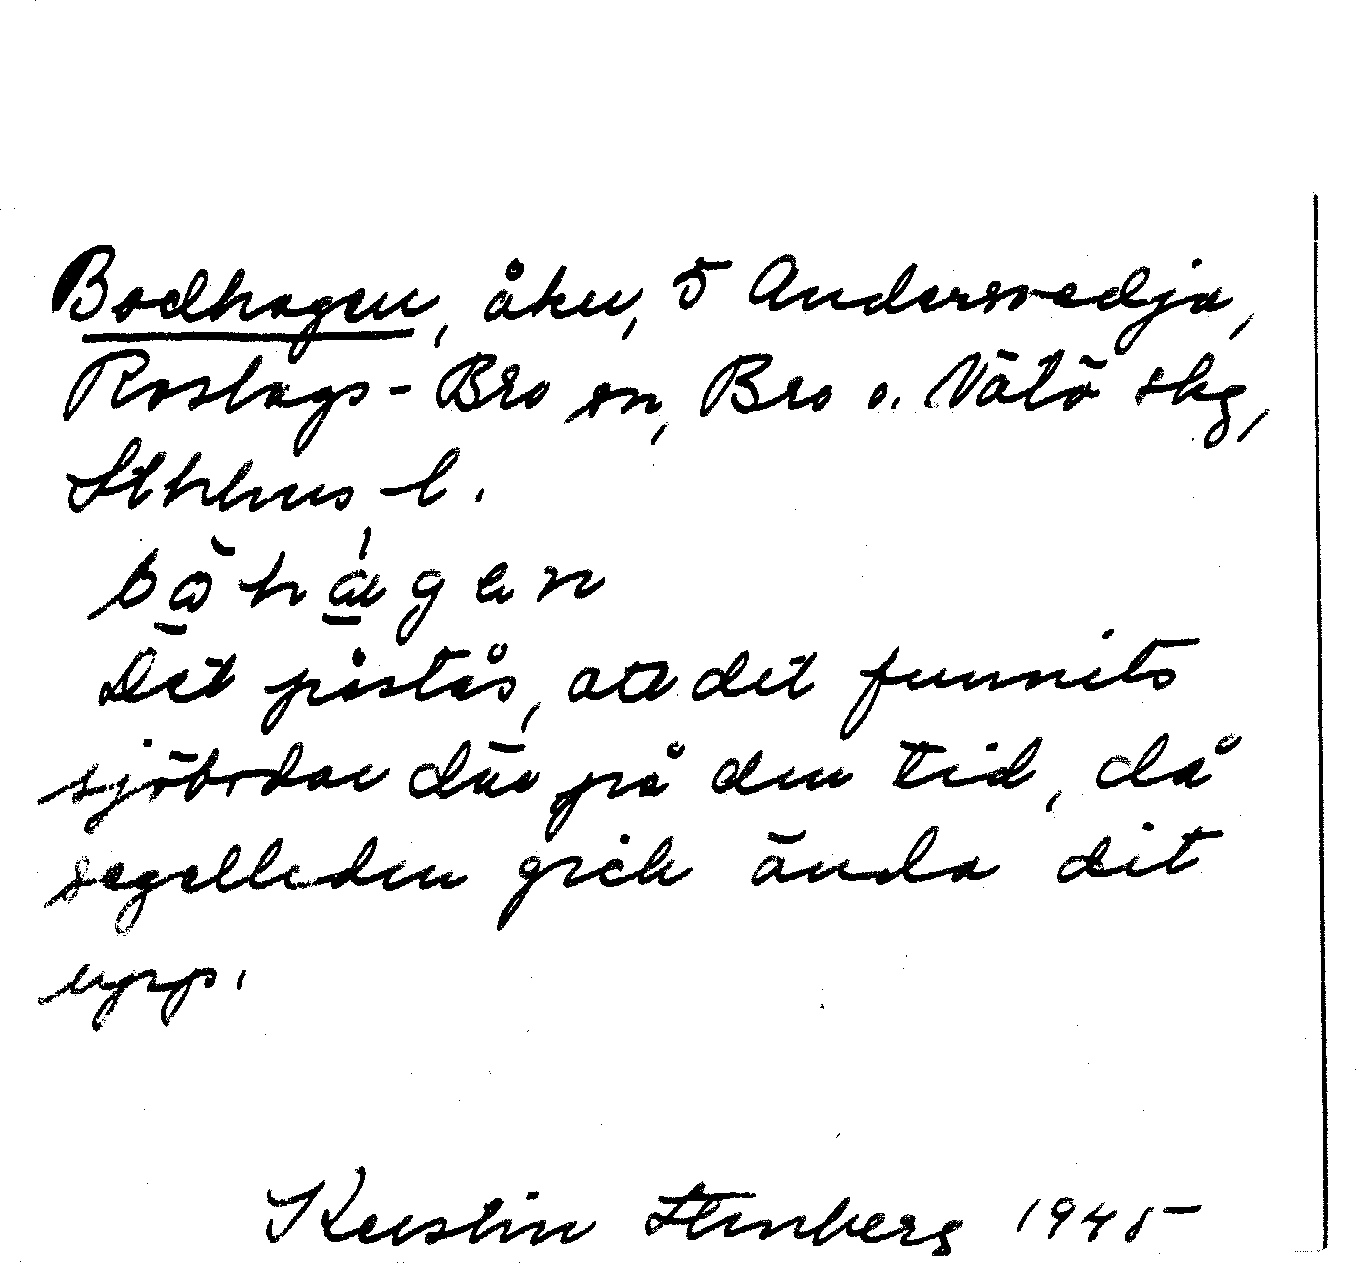 Bodhagen, åker, 5 Andersvedja,
Roslags-Bro sn, Bro o. Vätö skg,
Sthlms l.
bo̱hа̱gen
Det påstås, att det funnits
sjöbodar där på den tid, då
segelleden gick ända dit
upp.
Kerstin Stenberg 1945